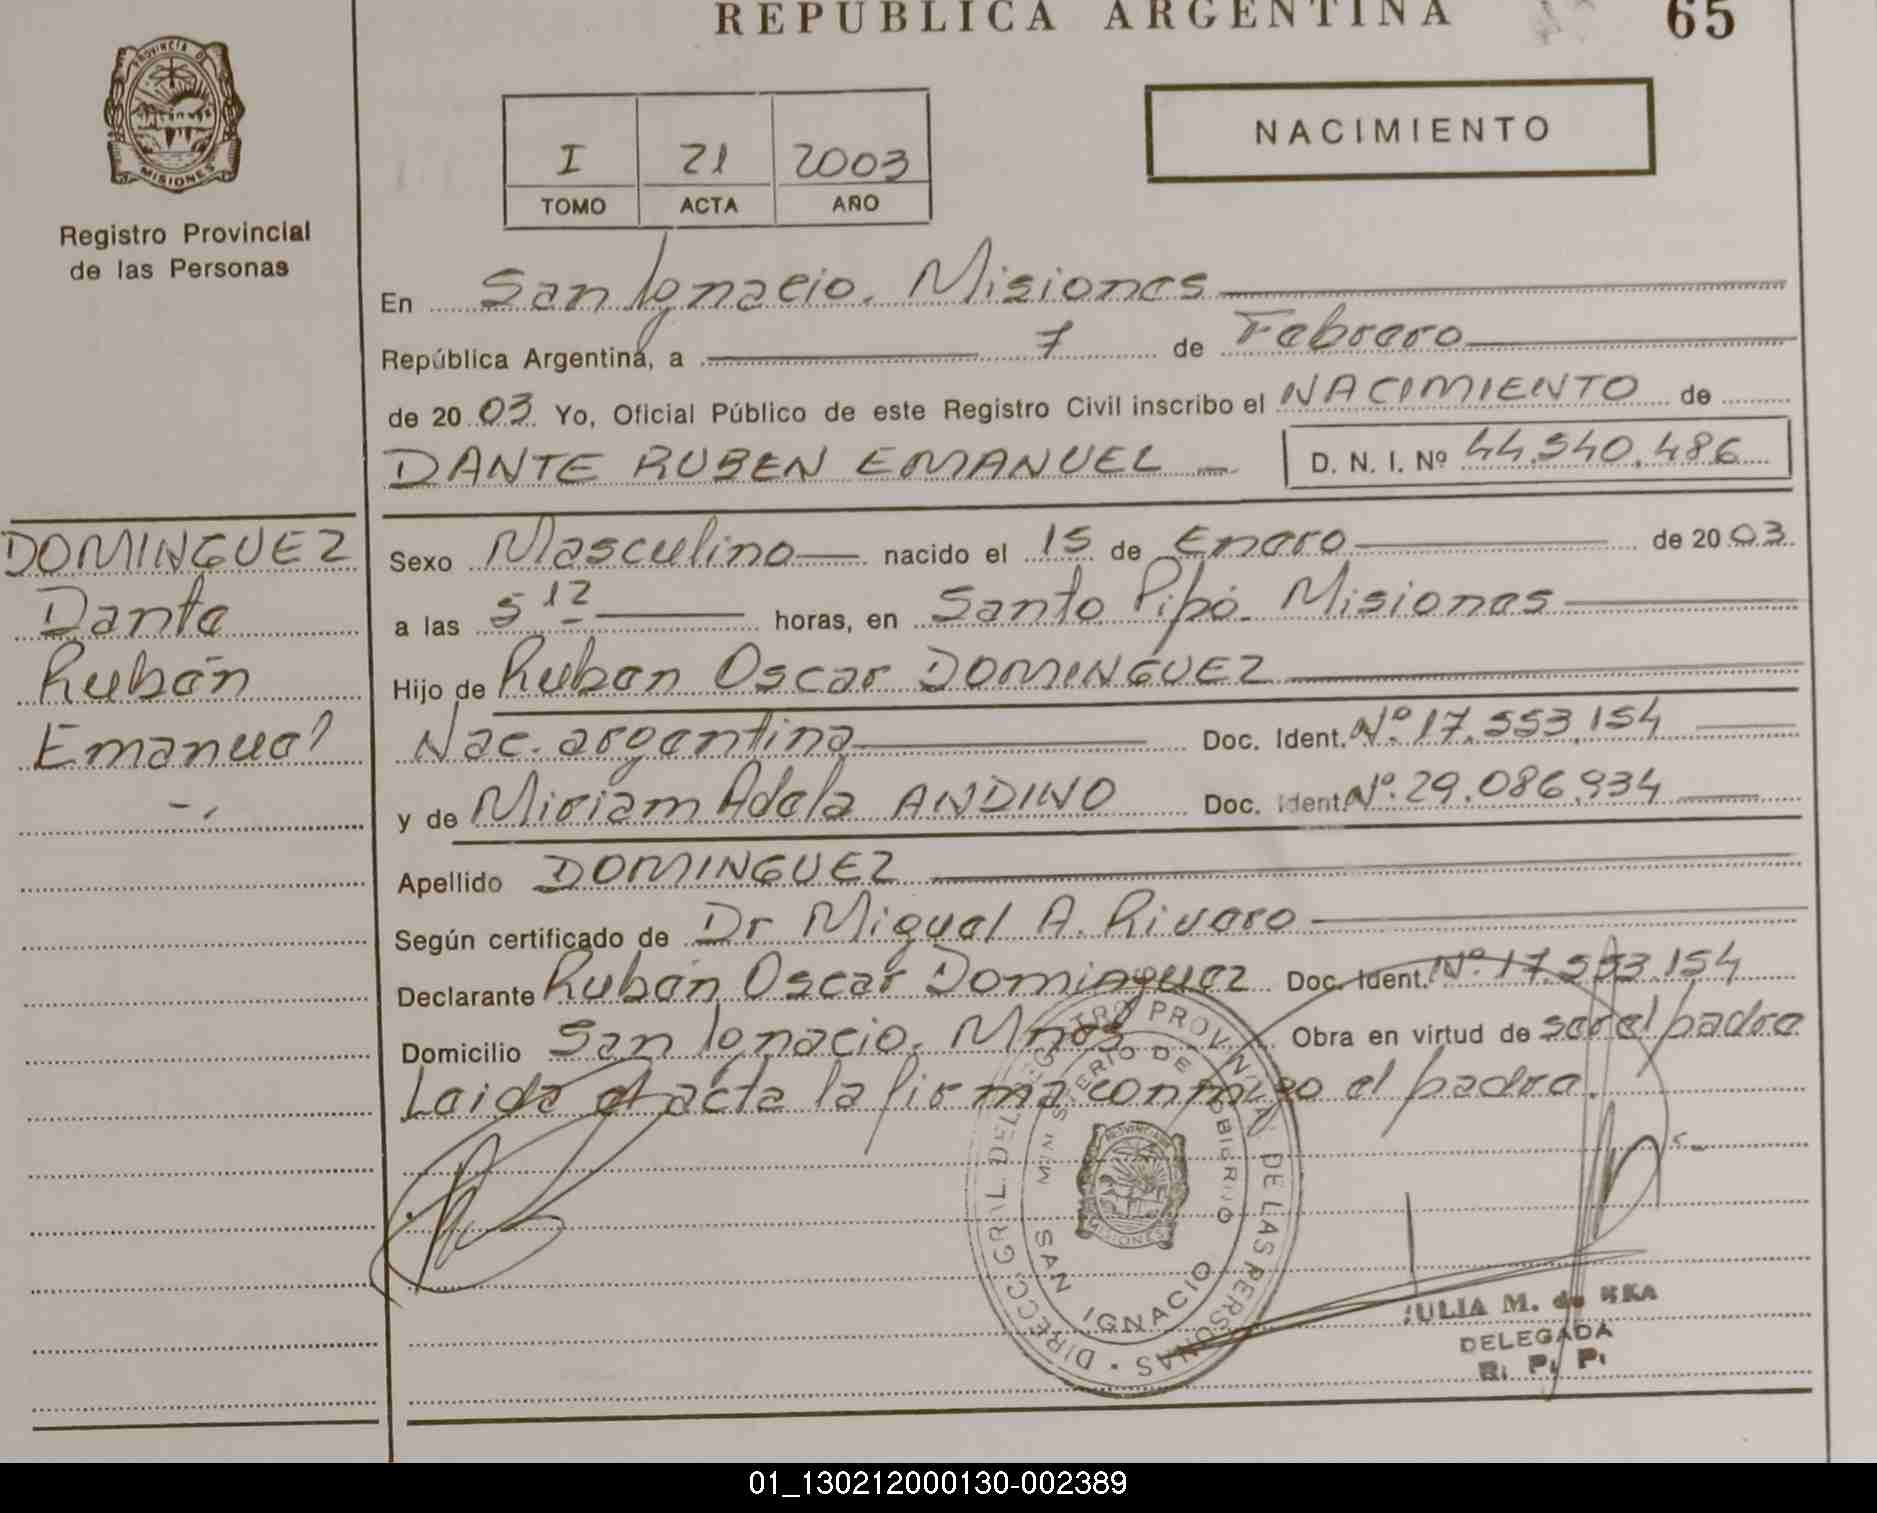 REPUBLICA ARGENTINA
65
PROVINCIA DE MISIONES
Registro Provincial
de las Personas
I 21 2003
TOMO ACTA AÑO
NACIMIENTO
En San Ignacio. Misiones
República Argentina, a 7 de Febrero
de 2003 Yo, Oficial Público de este Registro Civil inscribo el NACIMIENTO de
DANTE RUBEN EMANUEL D. N. I. Nº 44.540.486
DOMINGUEZ
Dante
Rubén
Emanuel
Sexo Masculino nacido el 15 de Enero de 2003.
a las 5 12 horas, en Santo Pipó. Misiones
Hijo de Ruben Oscar DOMINGUEZ
Nac. argentina Doc. Ident. Nº. 17.553.154
y de Miriam Adela ANDINO Doc. Ident. Nº. 29.086.934
Apellido DOMINGUEZ
Según certificado de Dr Miguel A. Rivero
Declarante Rubén Oscar Dominguez Doc. Ident. Nº. 17.553.154
Domicilio San Ignacio. Mnes Obra en virtud de ser el padre
Leida el acta la firma conmigo el padre.
DIRECC. GRAL. DEL REGISTRO PROVINCIAL DE LAS PERSONAS
MINISTERIO DE GOBIERNO
PROVINCIA DE
MISIONES
SAN IGNACIO
JULIA M. de
DELEGADA
R. P. P.
01_130212000130-002389